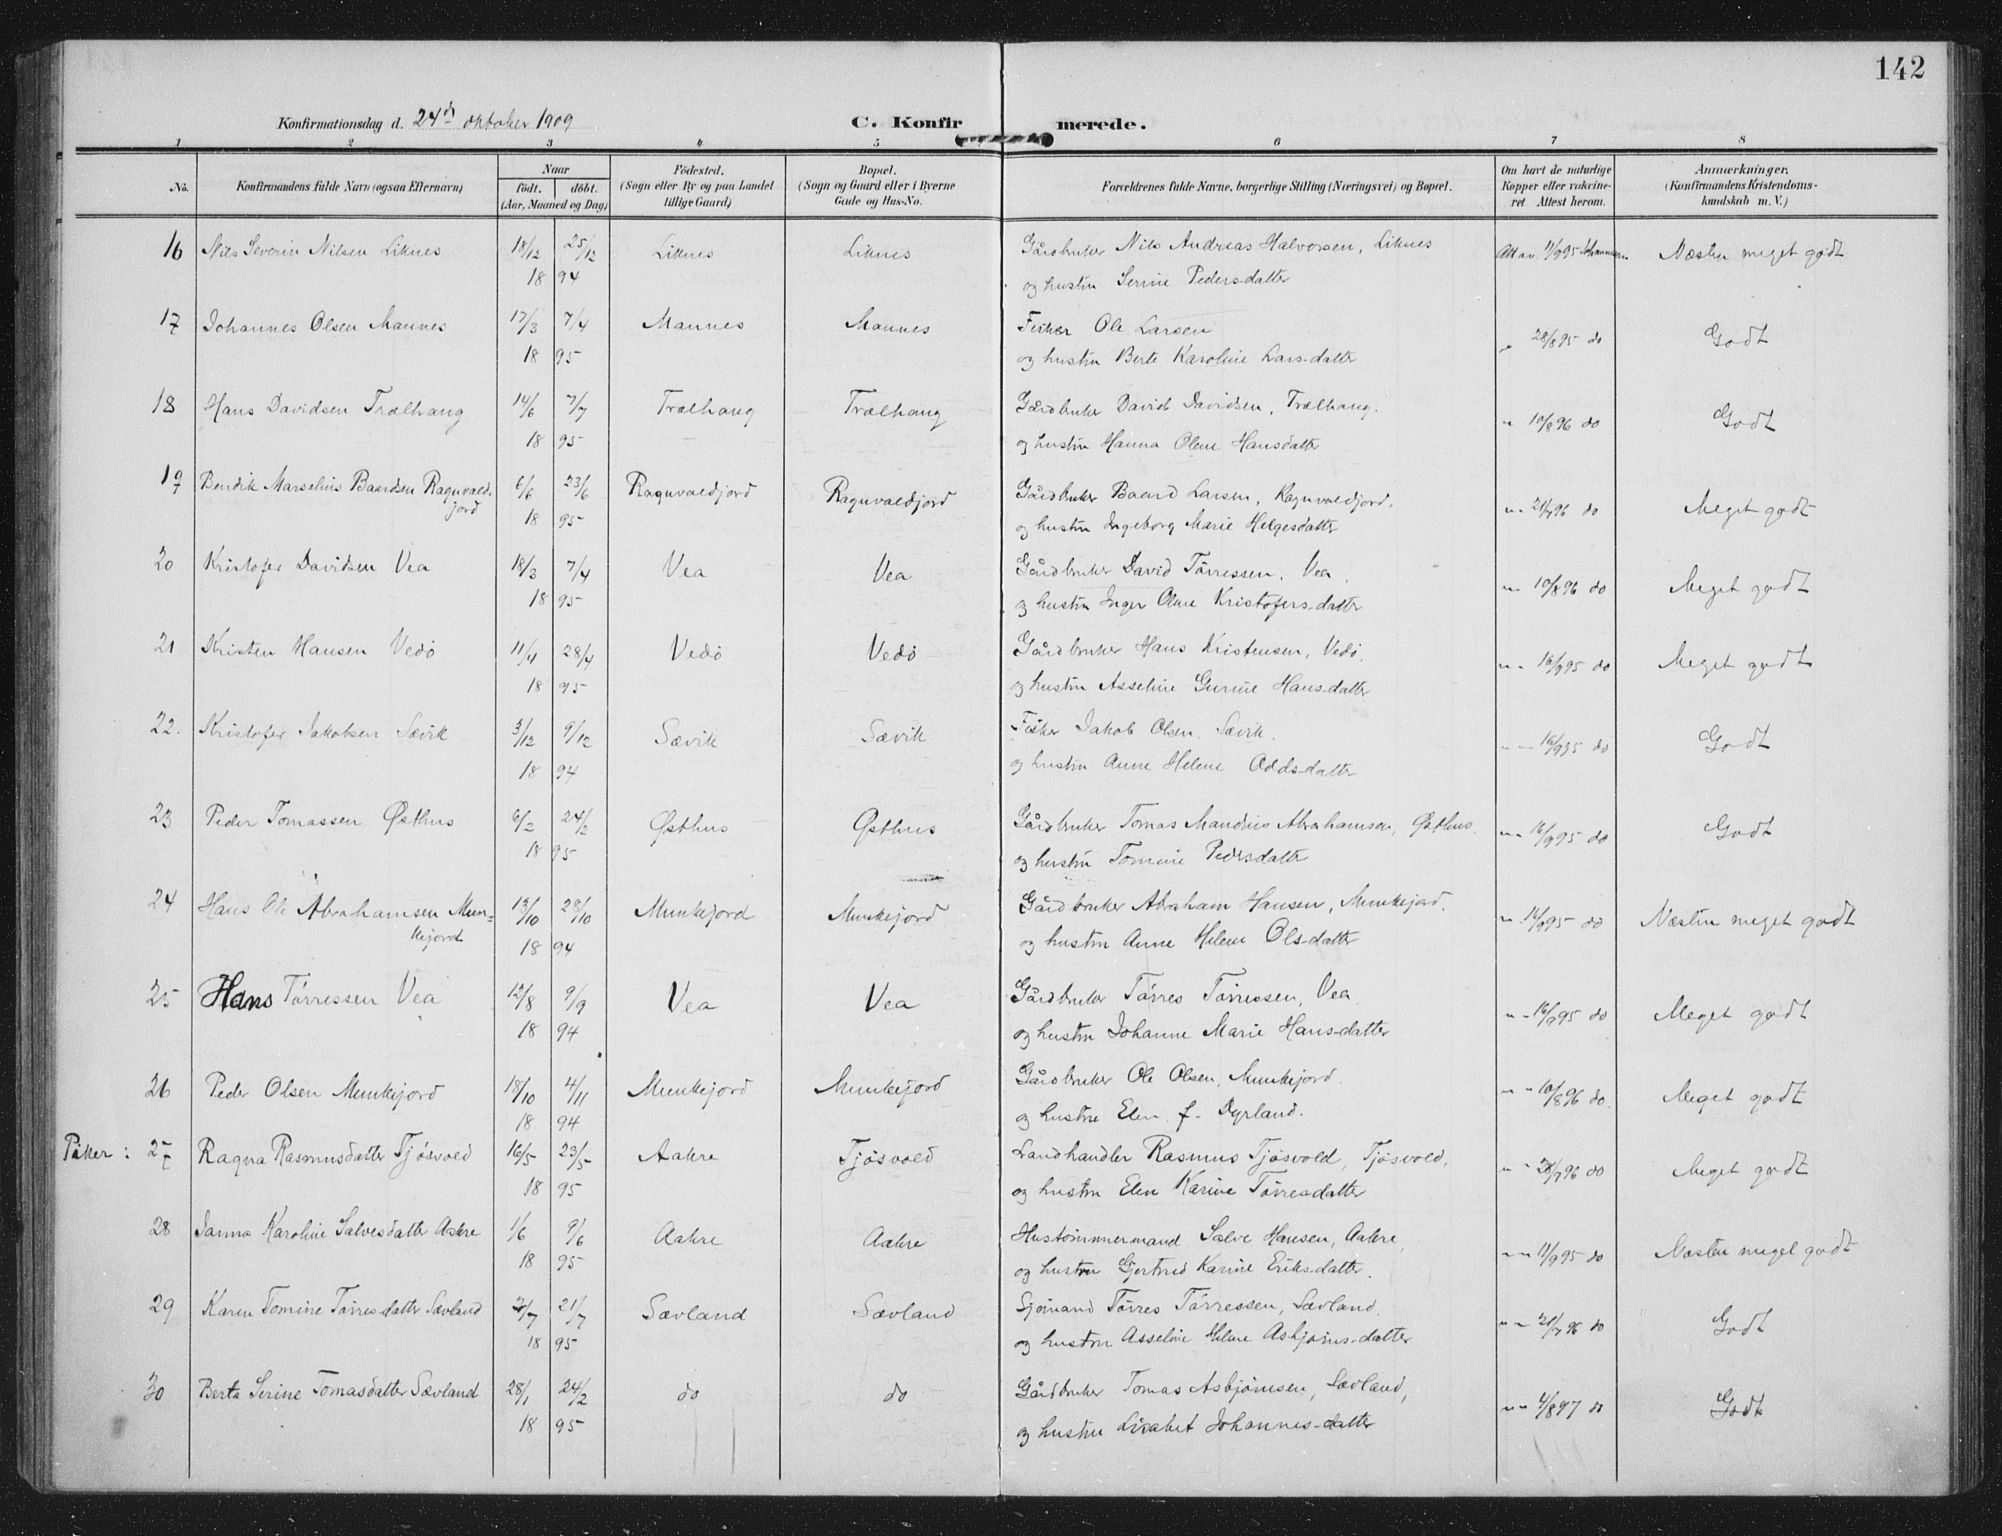 142
Konfirmationsdag d. 24de oktober 1909 C. Konfirmerede.
1 2 3 4 5 6 7 8
No. Konfirmandens fulde Navn (ogsaa Efternavn) Naar födt. döbt. (Aar, Maaned og Dag) Födested. (Sogn eller By og paa Landet tillige Gaard) Bopæl. (Sogn og Gaard eller i Byerne Gade og Hus-No. Forældrenes fulde Navne, borgerlige Stilling (Næringsvei) og Bopæl. Om havt de naturlige Kopper eller vakcineret Attest herom. Anmærkninger. (Konfirmandens Kristendomskundskab m. V.)
16 Nils Severin Nilsen Liknes 18/12 25/12 Liknes Liknes Gårdbruker Nils Andreas Halvorsen, Liknes Att av. 11/9 95 Johannesen Næsten meget godt
18 94 og hustru Serine Pedersdatter
17 Johannes Olsen Mannes 17/3 7/4 Mannes Mannes Fisker Ole Larsen " 28/8 95 do Godt
18 95 og hustru Berte Karoline Lars-datter
18 Hans Davidsen Trælhaug 14/6 7/7 Trælhaug Trælhaug Gårdbruker David Davidsen, Trælhaug. " 10/8 96 do Godt
18 95 og hustru Hanna Olene Hansdatter
19 Bendik Marselius Baardsen Ragnvaldjord 6/6 23/6 Ragnvaldjord Ragnvaldjord Gårdbruker Baard Larsen, Ragnvaldjord, " " 21/7 96 do Meget godt
18 95 og hustru Ingeborg Marie Helgesdatter
20 Kristofer Davidsen Vea 18/3 7/4 Vea Vea Gårdbruker David Törressen, Vea, " " 10/8 96 do Meget godt
18 95 og hustru Inger Oline Kristofers-datter
21 Kristen Hansen Vedö 11/4 28/4 Vedö Vedö Gårdbruker Hans Kristensen, Vedö, " " 16/9 95 do Meget godt
18 95 og hustru Asseline Gurine Hans-datter
22. Kristofer Jakobsen Sævik 3/12 9/12 Sævik Sævik Fisker Jakob Olsen. Sævik. " " 16/9 95 do Godt
18 94 og hustru Anne Helene Odds-datter
23 Peder Tomassen Østhus 6/2 24/2 Østhus Østhus Gårdbruker Tomas Mandius Abrahamsen, Østhus. " " 16/9 95 do Godt
18 95 og hustru Tomine Pedersdatter
24 Hans Ole Abrahamsen Munkejord 13/10 28/10 Munkejord Munkejord Gårdbruker Abraham Hansen, Munkejord. " 16/9 95 do Næsten meget godt
18 94 og hustru Anne Helene Ols-datter
25 Hans Törressen Vea 12/8 9/9 Vea Vea Gårdbruker Törres Törressen, Vea " " 16/9 95 do Meget godt
18 94 og hustru Johanne Marie Hans-datter
26 Peder Olsen Munkejord 18/10 4/11 Munkejord Munkejord Gårdbruker Ole Olsen, Munkejord. " " 10/8 96 do. Meget godt
18 94 og hustru Elen f. Dyrland.
Piker: 27 Ragna Rasmusdatter Tjösvold 16/5 23/5 Aakre Tjösvold Landhandler Rasmus Tjösvold, Tjösvold, " " 28/7 96 do Meget godt
18 95 og hustru Elen Karine Törresdatter
28 Janna Karoline Salvesdatter Aakre 1/6 9/6 Aakre Aakre Hustömmermand Salve Hansen, Aakre, " " 11/9 95 do Næsten meget godt
18 95 og hustru Gjertrud Karine Eriks-datter.
29 Karen Tomine Törres-datter Sævland /7 21/7 Sævland Sævland Sjömand Törres Törressen, Sævland. " " 21/7 96 do Godt
18 95 og hustru Asseline Helene Asbjörns-datter
30 Berta Serine Tomasdatter Sævland 28/1 24/2 do do Gårdbruker Tomas Asbjörnsen, Sævland, " " 4/8 97 do Godt
18 95 og hustru Lisabet Johannes-datter